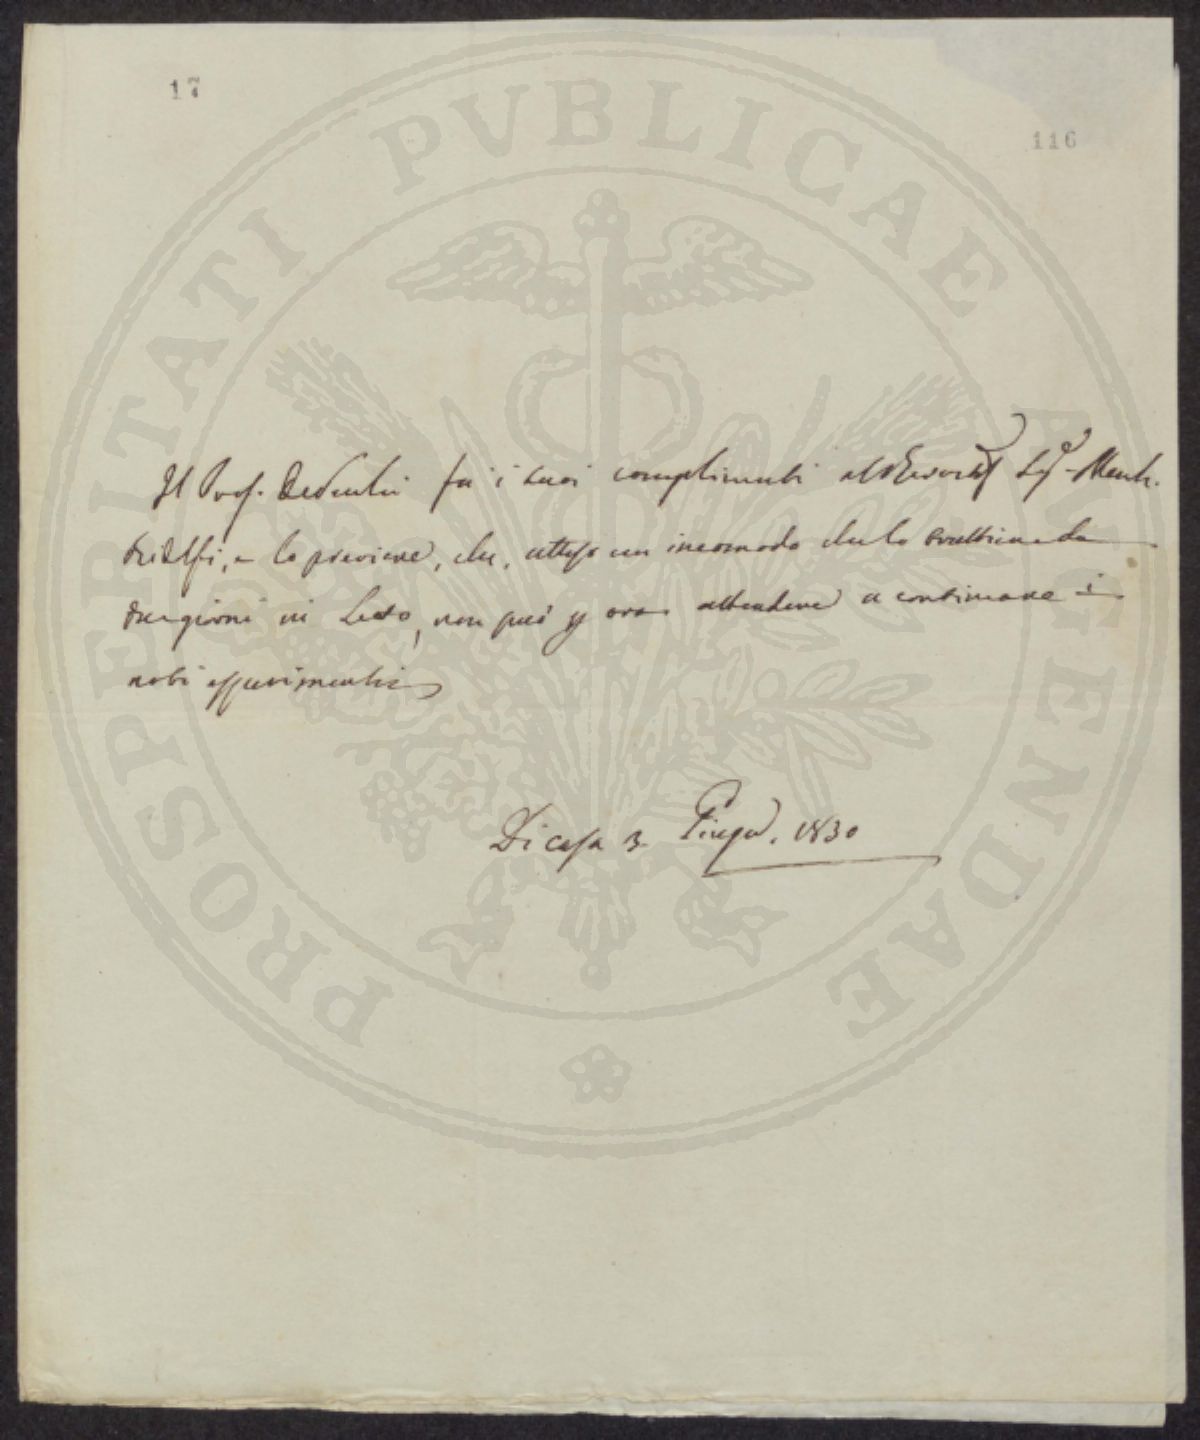 17
116
PROSPERITATI PVBLICAE AVGENDAE
Il Prof. fa i suoi complimenti al Sig.r March.
Ridolfi, e lo previene, che, atteso un incomodo che lo trattiene da
tre giorni in Letto, non può p ora attendere a continuare i
noti esperimenti
Di casa 3. Giugno. 1830